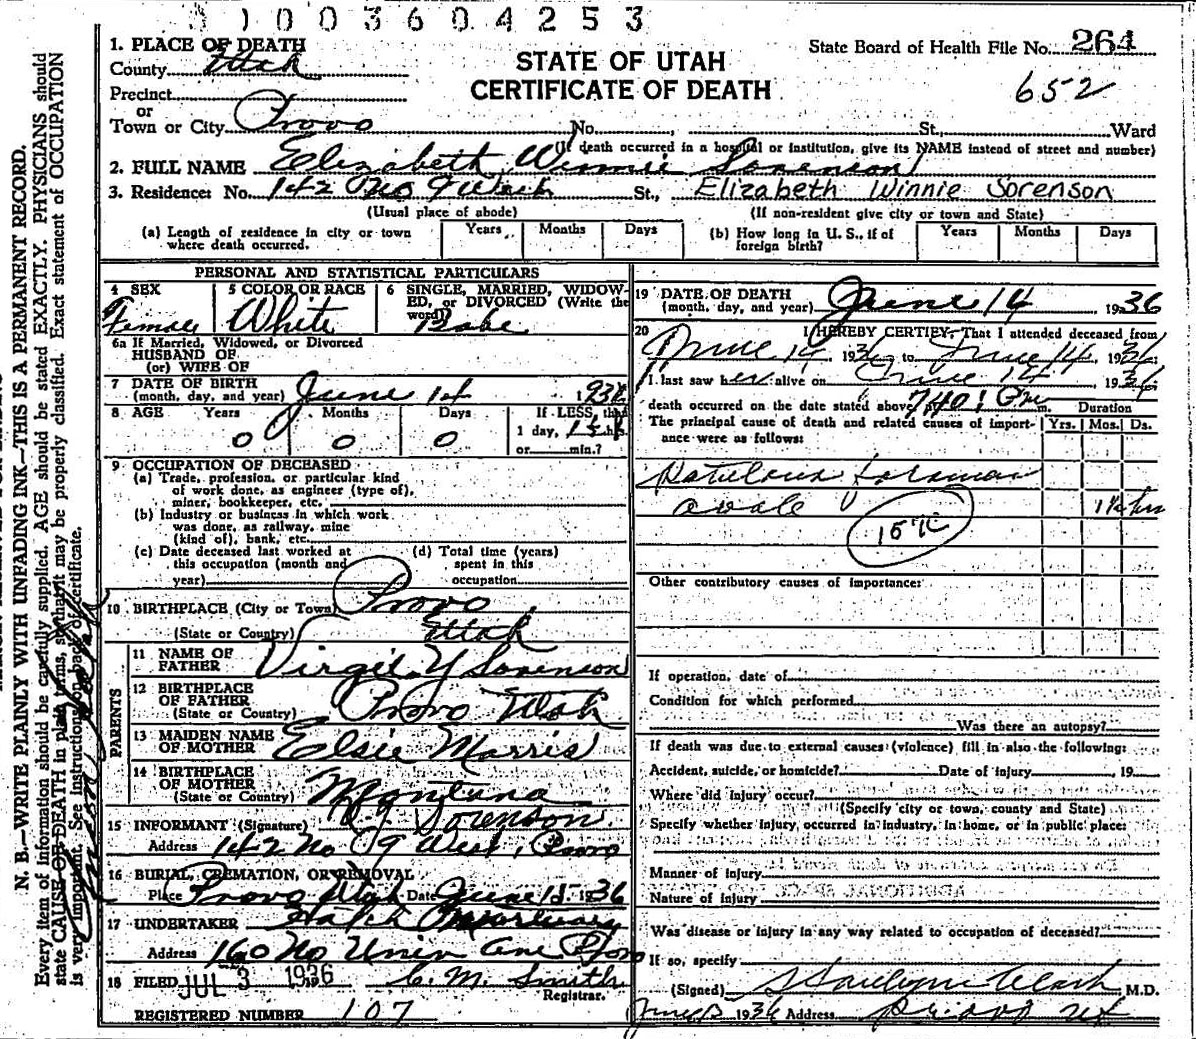 1003604253
1. PLACE OF DEATH
County Utah
STATE OF UTAH
CERTIFICATE OF DEATH
State Board of Health File No. 264
652
Precinct
or
Town or City Provo No. , St., Ward
(If death occurred in a hospital or institution, give its NAME instead of street and number)
2. FULL NAME Elizabeth Winnie Sorenson
3. Residence: No. 142 No 9 West St., Elizabeth Winnie Sorenson
(Usual place of abode) (If non-resident give city or town and State)
(a) Length of residence in city or town where death occurred. Years Months Days
(b) How long in U. S., if of foreign birth? Years Months Days
PERSONAL AND STATISTICAL PARTICULARS
4 SEX Female
5 COLOR OR RACE White
6 SINGLE, MARRIED, WIDOWED, or DIVORCED (Write the word) Babe
6a If Married, Widowed, or Divorced
HUSBAND OF
(or) WIFE OF
7 DATE OF BIRTH
(month, day, and year) June 14 1936
8 AGE Years Months Days If LESS than
0 0 0 1 day, 1½ hrs.
or min.?
9 OCCUPATION OF DECEASED
(a) Trade, profession, or particular kind
of work done, as engineer (type of),
miner, bookkeeper, etc.
(b) Industry or business in which work
was done, as railway, mine
(kind of), bank, etc.
(c) Date deceased last worked at
this occupation (month and
year)
(d) Total time (years)
spent in this
occupation
10 BIRTHPLACE (City or Town) Provo
(State or Country) Utah
PARENTS
11 NAME OF
FATHER Virgil Y Sorenson
12 BIRTHPLACE
OF FATHER
(State or Country) Provo Utah
13 MAIDEN NAME
OF MOTHER Elsie Morris
14 BIRTHPLACE
OF MOTHER
(State or Country) Montana
15 INFORMANT (Signature) Sorenson
Address 142 No 9 West, Provo
16 BURIAL, CREMATION, OR REMOVAL
Place Provo Utah Date June 1936
17 UNDERTAKER Hatch Mortuary
Address 160 No Univ. Ave Provo
18 FILED JUL 3 1936 C. M. Smith
Registrar.
REGISTERED NUMBER 107
19 DATE OF DEATH
(month, day, and year) June 14 1936
20 I HEREBY CERTIFY, That I attended deceased from
June 14 1936 to June 14, 1936
I last saw her alive on June 14, 1936
death occurred on the date stated above, at 7401 Pm m. Duration
The principal cause of death and related causes of importance were as follows: Yrs. Mos. Ds.
Patulous foramen
ovale 1½ hrs
157C
Other contributory causes of importance:
If operation, date of
Condition for which performed
Was there an autopsy?
If death was due to external causes (violence) fill in also the following:
Accident, suicide, or homicide? Date of injury , 19
Where did injury occur?
(Specify city or town, county and State)
Specify whether injury occurred in industry, in home, or in public place:
Manner of injury
Nature of injury
Was disease or injury in any way related to occupation of deceased?
If so, specify
(Signed) Clark M.D.
1936 Address Provo Ut
N. B.—WRITE PLAINLY WITH UNFADING INK—THIS IS A PERMANENT RECORD.
Every item of information should be carefully supplied. AGE should be stated EXACTLY. PHYSICIANS should
state CAUSE OF DEATH in plain terms, so that it may be properly classified. Exact statement of OCCUPATION
is very important. See instructions on back of certificate.